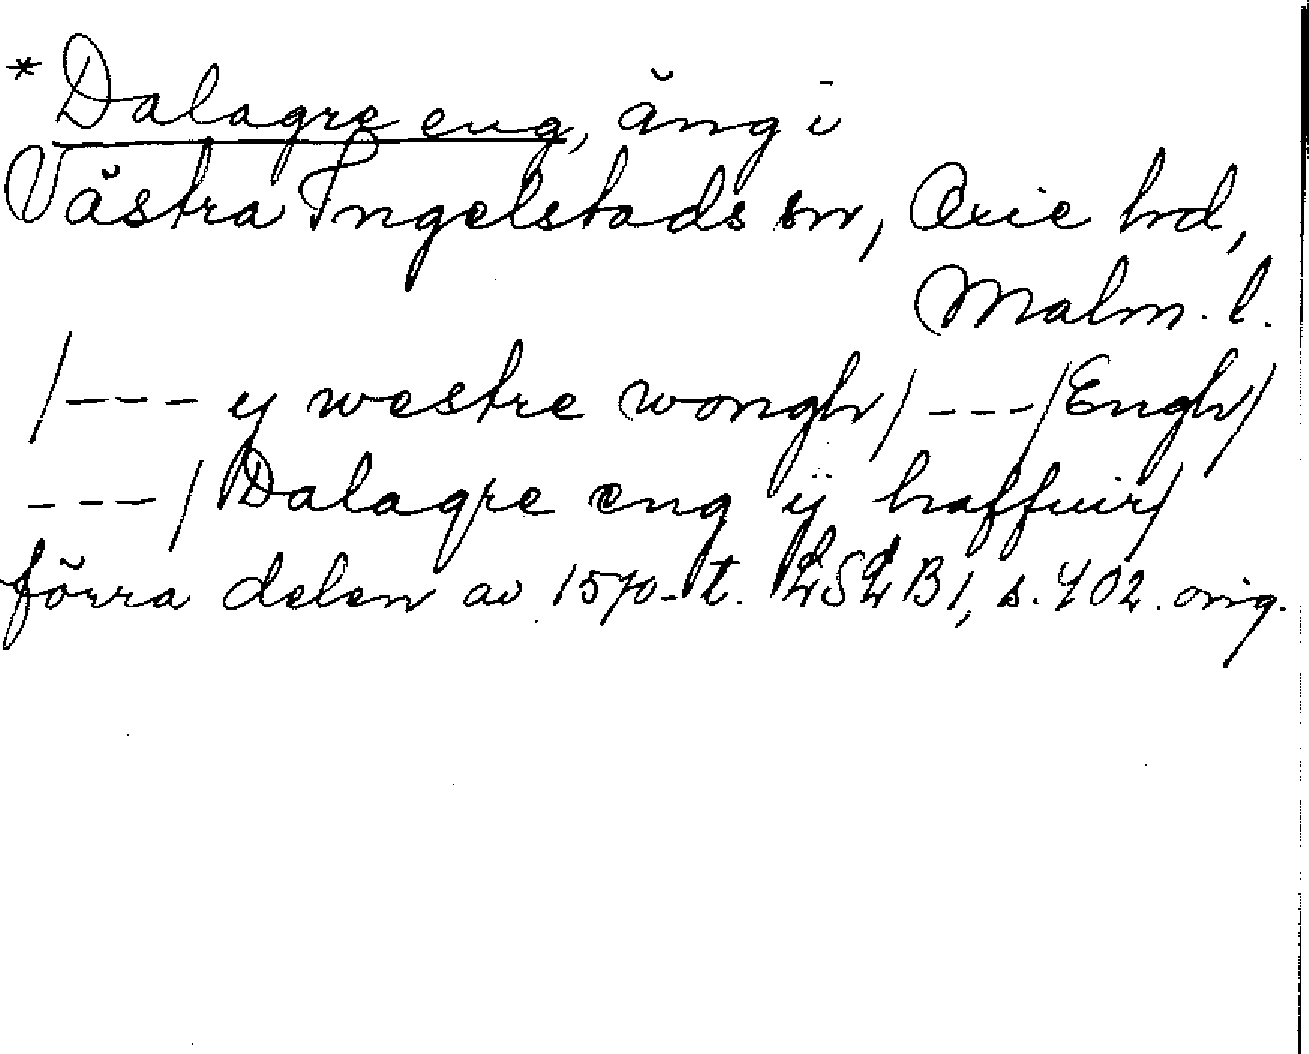 * Dalagre eng, äng i
Västra Ingelstads sn, Oxie hd,
Malm. l.
/--- y westre wongh/ ---/Engh/
---/ Dalagre eng ÿ haffuir/
förra delen av 1570-t. LSLB1, s. 402. orig.